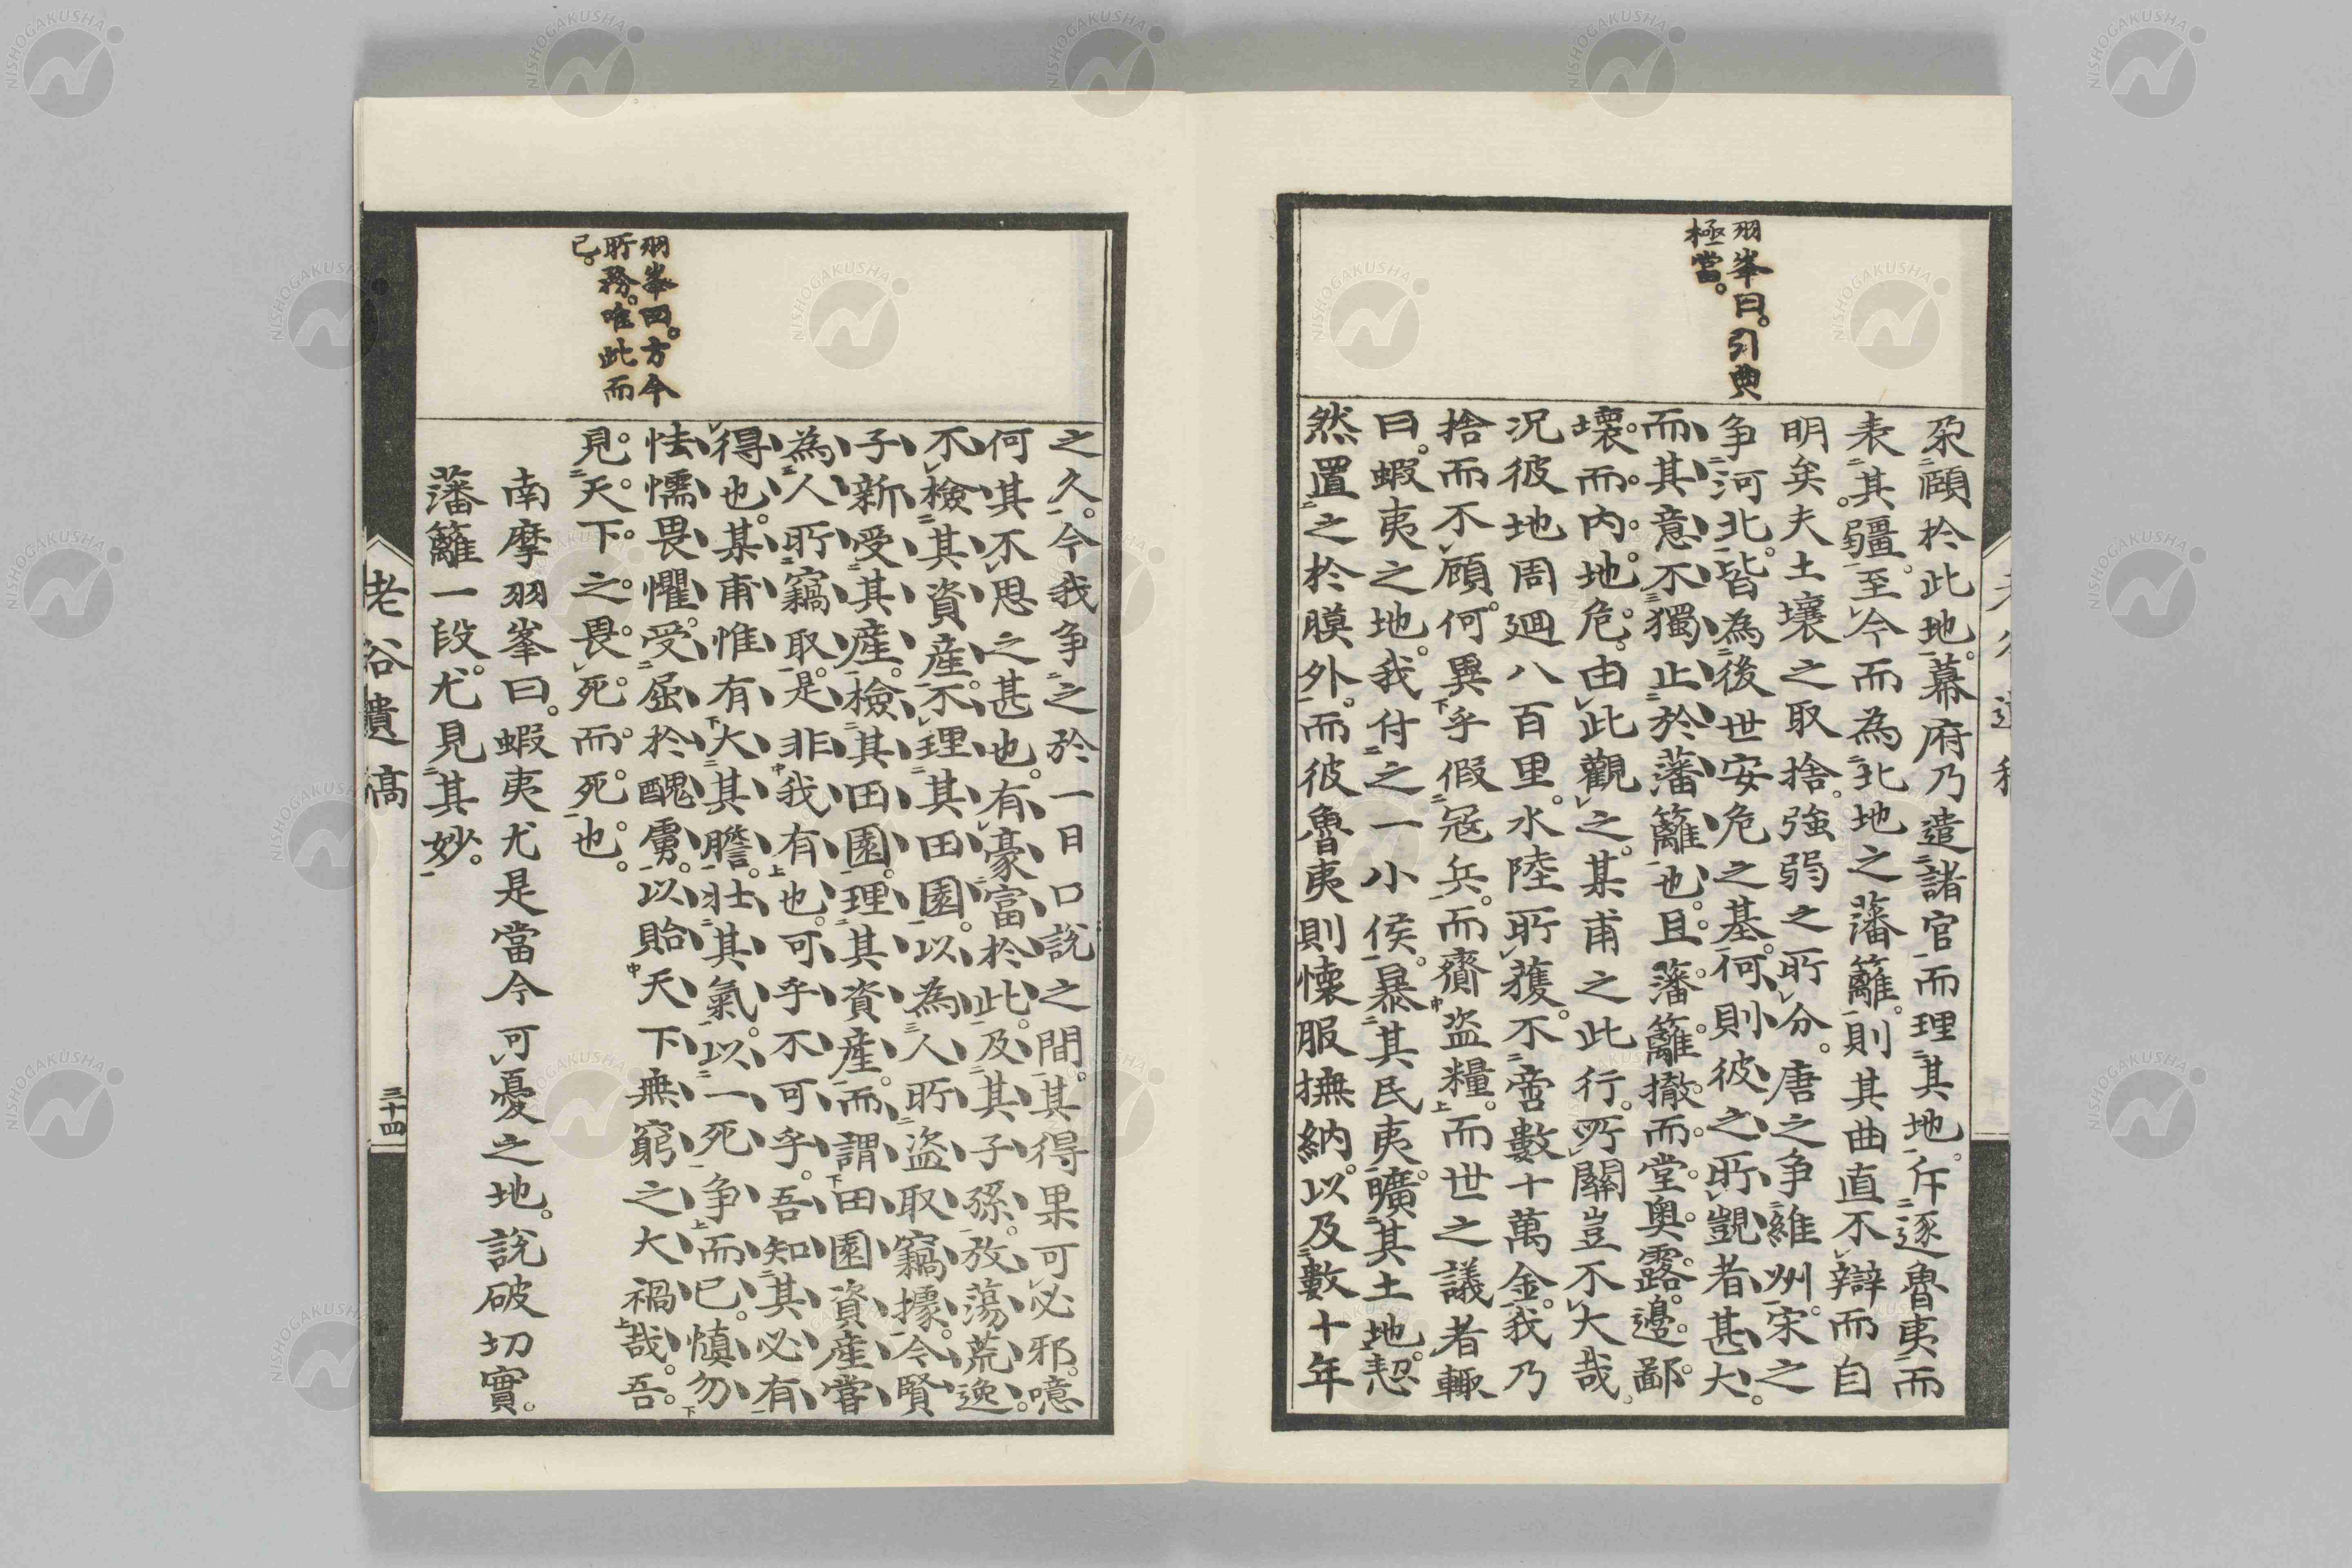 羽峯曰。引典
極當。
朶頤於此地。幕府乃遣諸官而理其地。斥逐魯夷而
表其疆。至今而為北地之藩籬。則其曲直不辯而自
明矣夫土壤之取捨。強弱之所分。唐之争維州。宋之
争河北。皆為後世安危之基。何則彼之所覬者甚大。
而其意不獨止於藩籬也。且藩籬撤而堂奥露。邊鄙
壞。而内地危。由此觀之。某甫之此行。所關豈不大哉。
況彼地周廻八百里。水陸所獲。不啻數十萬金。我乃
捨而不顧。何異乎假冦兵。而齎盗糧。而世之議者輙
曰。蝦夷之地。我付之一小侯。暴其民夷。曠其土地。恝
然置之於膜外。而彼魯夷則懐服撫納。以及數十年
羽峯曰。方今
所務。唯此而
已。
之久。今我争之於一日口說之間。其得果可必邪。噫
何其不思之甚也。有豪富於此。及其子孫。放蕩荒逸。
不檢其資産。不理其田園。以為人所盗取竊據。今賢
子新受其産。檢其田園。理其資産。而謂田園資産嘗
為人所竊取。是非我有也。可乎不可乎。吾知其必有
得也。某甫惟有大其膽。壯其氣。以一死争而已。慎勿
怯懦畏懼。受屈於醜虜。以貽天下無窮之大禍哉。吾
見天下之畏死而死也。
南摩羽峯曰。蝦夷尤是當今可憂之地。說破切實。
藩籬一段。尤見其妙。
老谷遺稿
三十四